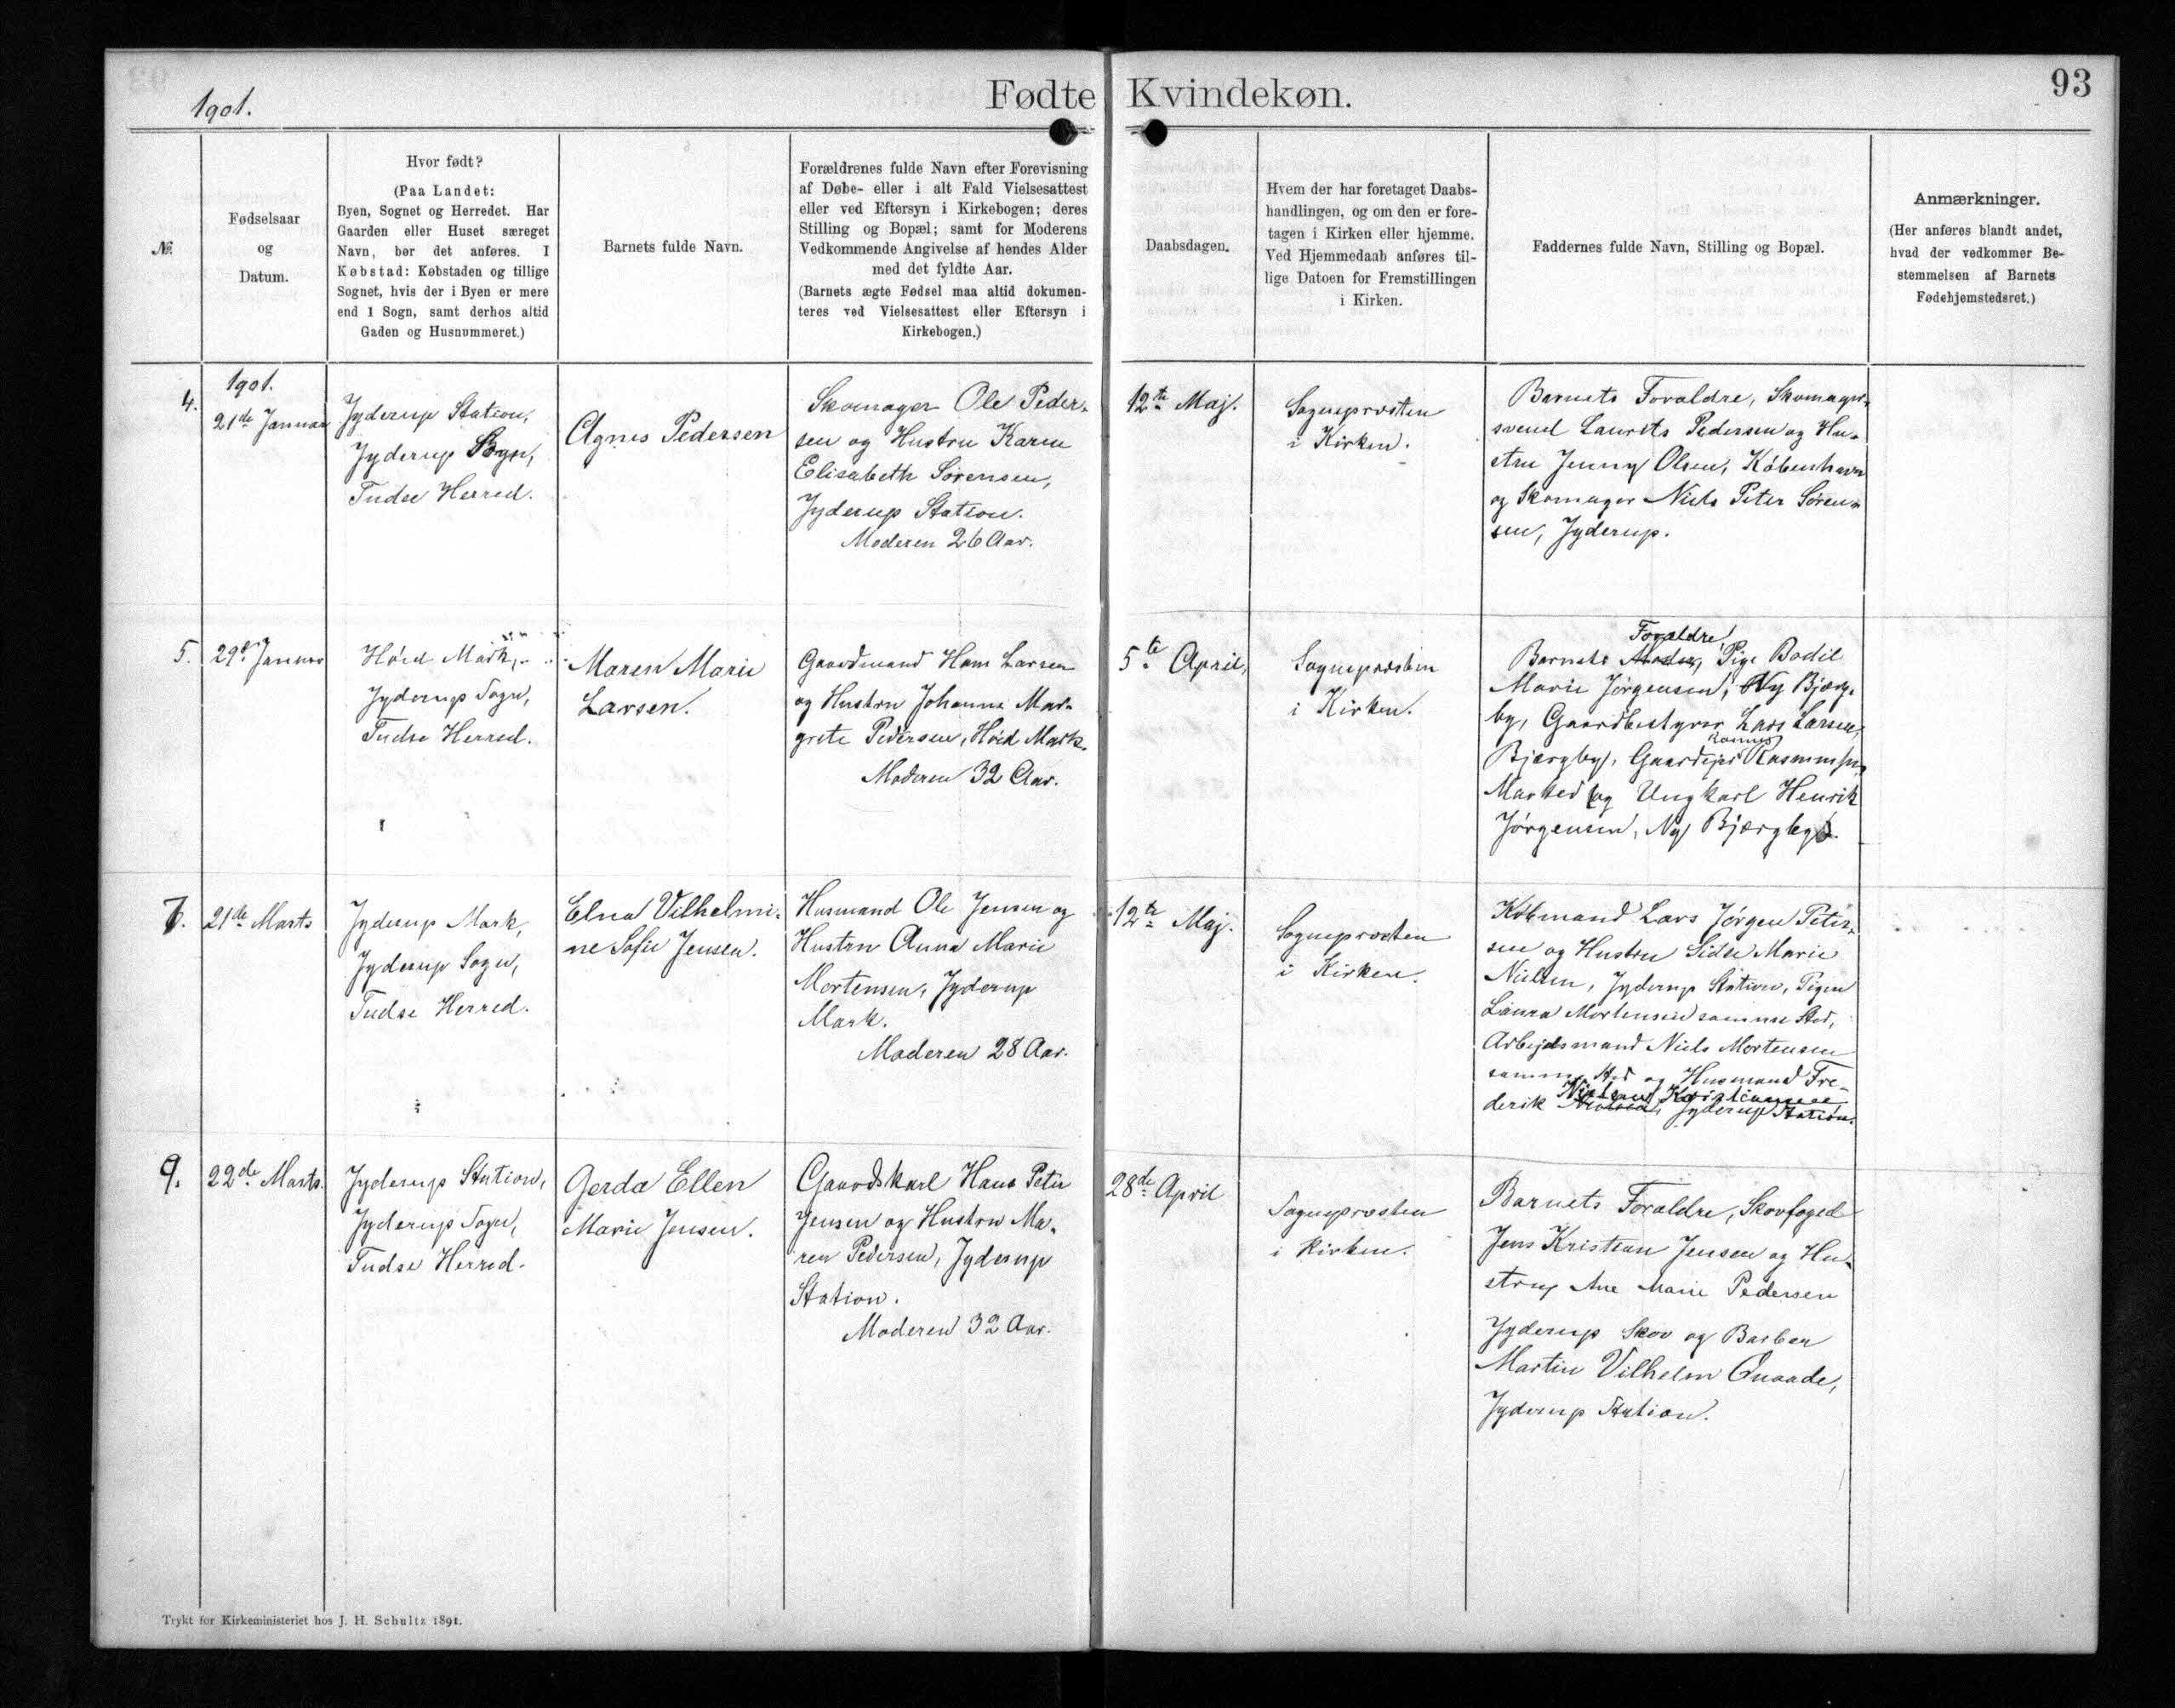 1901.
Fødte Kvindekøn.
93
№
Fødselsaar
og
Datum.
Hvor født?
(Paa Landet:
Byen, Sognet og Herredet. Har
Gaarden eller Huset særeget
Navn, bør det anføres. I
Købstad: Købstaden og tillige
Sognet, hvis der i Byen er mere
end 1 Sogn, samt derhos altid
Gaden og Husnummeret.)
Barnets fulde Navn.
Forældrenes fulde Navn efter Forevisning
af Døbe- eller i alt Fald Vielsesattest
eller ved Eftersyn i Kirkebogen; deres
Stilling og Bopæl; samt for Moderens
Vedkommende Angivelse af hendes Alder
med det fyldte Aar.
(Barnets ægte Fødsel maa altid dokumen-
teres ved Vielsesattest eller Eftersyn i
Kirkebogen.)
Daabsdagen.
Hvem der har foretaget Daabs-
handlingen, og om den er fore-
tagen i Kirken eller hjemme.
Ved Hjemmedaab anføres til-
lige Datoen for Fremstillingen
i Kirken.
Faddernes fulde Navn, Stilling og Bopæl.
Anmærkninger.
(Her anføres blandt andet,
hvad der vedkommer Be-
stemmelsen af Barnets
Fødehjemstedsret.)
4.
1901.
21de Januar
Jyderup Station,
Jyderup Sogn,
Tudse Herred.
Agnes Pedersen
Skomager Ole Peder-
sen og Hustru Karen
Elisabeth Sørensen,
Jyderup Station.
Moderen 26 Aar.
12te Maj.
Sognepræsten
i Kirken.
Barnets Forældre, Skomager-
svend Laurits Pedersen og Hu-
stru Jenny Olsen, København
og Skomager Niels Peter Søren-
sen, Jyderup.
5.
29de Januar
Höed Mark,
Jyderup Sogn,
Tudse Herred.
Maren Marie
Larsen.
Gaardmand Hans Larsen
og Hustru Johanne Mar-
grete Pedersen, Höed Mark.
Moderen 32 Aar.
5te April,
Sognepræsten
i Kirken.
Forældre,
Barnets Moder, Pige Bodil
Marie Jørgensen, Ny Bjærg-
by, Gaardbestyrer Lars Larsen,
Bjærgby, Gaardejer Rasmussen,
Marked og Ungkarl Henrik
Jørgensen, Ny Bjærgby.
7.
21de Marts
Jyderup Mark,
Jyderup Sogn,
Tudse Herred.
Elna Vilhelmi-
ne Sofie Jensen.
Husmand Ole Jensen og
Hustru Anna Marie
Mortensen, Jyderup
Mark.
Moderen 28 Aar.
12te Maj.
Sognepræsten
i Kirken.
Købmand Lars Jørgen Peter-
sen og Hustru Sidse Marie
Nielsen, Jyderup Station, Pigen
Laura Mortensen samme Sted,
Arbejdsmand Niels Mortensen
samme Sted og Husmand Fre-
derik Nielsen, Jyderup Station.
9.
22de Marts.
Jyderup Station,
Jyderup Sogn,
Tudse Herred.
Gerda Ellen
Marie Jensen.
Gaardskarl Hans Peter
Jensen og Hustru Ma-
ren Pedersen, Jyderup
Station.
Moderen 32 Aar.
28de April
Sognepræsten
i Kirken.
Barnets Forældre, Skovfoged
Jens Kristian Jensen og Hu-
stru Ane Marie Pedersen
Jyderup Skov og Barber
Martin Vilhelm Quaade,
Jyderup Station.
Trykt for Kirkeministeriet hos J. H. Schultz 1891.